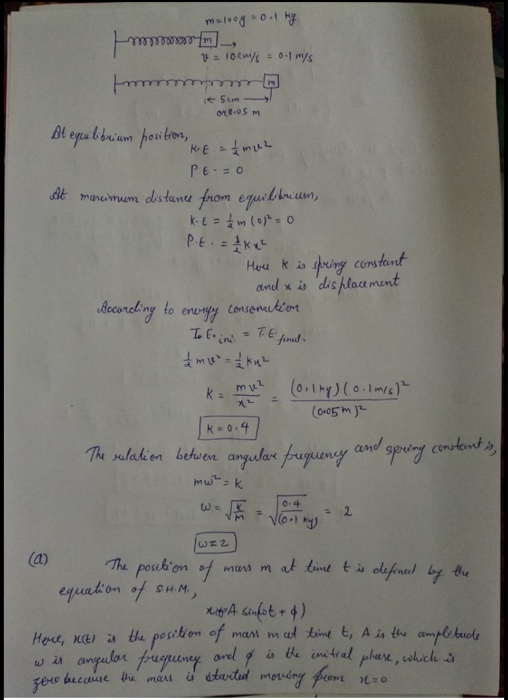 m=100g = 0.1 kg
m
v = 10cm/s = 0.1 m/s
m
5cm
or 0.05 m
At equilibrium position,
K.E = 1/2 mv²
P.E. = 0
At maximum distance from equilibrium,
K.E = 1/2 m (0)² = 0
P.E. = 1/2 Kx²
Here K is spring constant
and x is displacement
According to energy conservation
T.E. ini. = T.E final.
1/2 mv² = 1/2 Kx²
K = mv²/x² = (0.1kg)(0.1m/s)²/(0.05m)²
K = 0.4
The relation between angular frequency and spring constant is,
mω² = K
ω = √(K/m) = √(0.4/(0.1 kg)) = 2
ω = 2
(a) The position of mass m at time t is defined by the
equation of S.H.M.,
x(t) = A sin(ωt + ϕ)
Here, x(t) is the position of mass m at time t, A is the amplitude
ω is angular frequency and ϕ is the initial phase, which is
zero because the mass is started moving from x=0